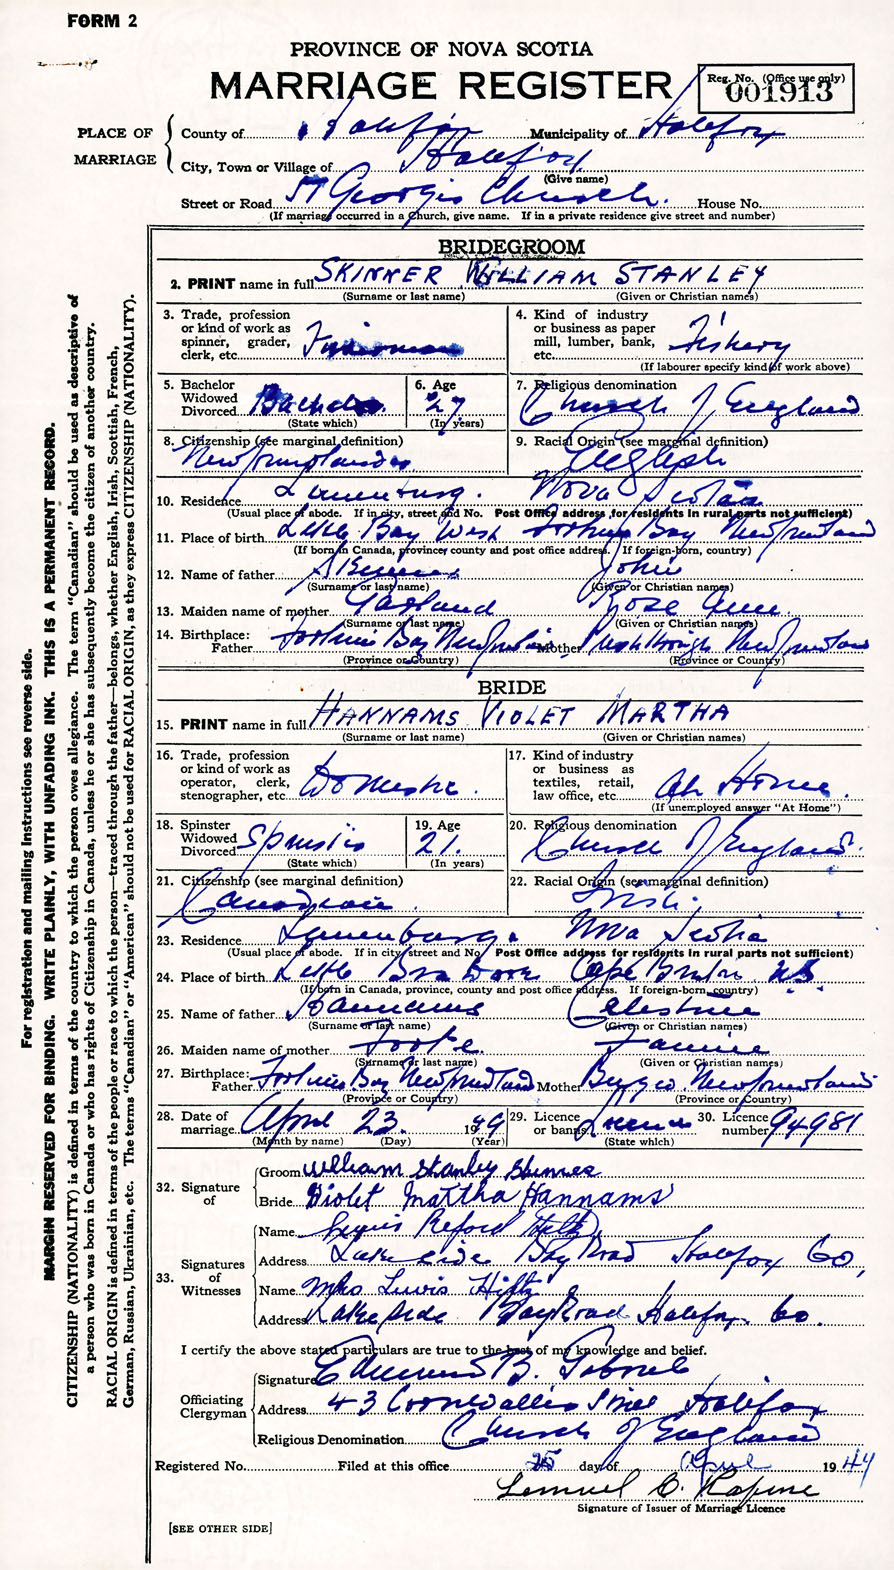 FORM 2
PROVINCE OF NOVA SCOTIA
MARRIAGE REGISTER
Reg. No. (Office use only)
001913
PLACE OF MARRIAGE
County of Halifax Municipality of Halifax
City, Town or Village of Halifax
(Give name)
Street or Road St Georges Church. House No.
(If marriage occurred in a Church, give name. If in a private residence give street and number)
BRIDEGROOM
2. PRINT name in full SKINNER WILLIAM STANLEY
(Surname or last name) (Given or Christian names)
3. Trade, profession or kind of work as spinner, grader, clerk, etc. Fisherman
4. Kind of industry or business as paper mill, lumber, bank, etc. Fishery
(If labourer specify kind of work above)
5. Bachelor Widowed Divorced Bachelor
(State which)
6. Age 27
(In years)
7. Religious denomination Church of England
8. Citizenship (see marginal definition)
Newfoundland
9. Racial Origin (see marginal definition)
English
10. Residence Lunenburg. Nova Scotia
(Usual place of abode. If in city, street and No. Post Office address for residents in rural parts not sufficient)
11. Place of birth Little Bay West Fortune Bay Newfoundland
(If born in Canada, province county and post office address. If foreign-born, country)
12. Name of father Skinner John
(Surname or last name) (Given or Christian names)
13. Maiden name of mother Garland Rose Ann.
(Surname or last name) (Given or Christian names)
14. Birthplace: Father Fortune Bay Newfoundland Mother Newfoundland
(Province or Country) (Province or Country)
BRIDE
15. PRINT name in full HANNAMS VIOLET MARTHA
(Surname or last name) (Given or Christian names)
16. Trade, profession or kind of work as operator, clerk, stenographer, etc. Domestic.
17. Kind of industry or business as textiles, retail, law office, etc. At Home.
(If unemployed answer "At Home")
18. Spinster Widowed Divorced Spinster
(State which)
19. Age 21.
(In years)
20. Religious denomination
Church of England.
21. Citizenship (see marginal definition)
Canadian.
22. Racial Origin (see marginal definition)
Irish.
23. Residence Lunenburg. Nova Scotia
(Usual place of abode. If in city street and No. Post Office address for residents in rural parts not sufficient)
24. Place of birth Little Bras Dore Cape Breton N.S.
(If born in Canada, province, county and post office address. If foreign-born, country)
25. Name of father Hannams Celestine
(Surname or last name) (Given or Christian names)
26. Maiden name of mother Foote. Fannie
(Surname or last name) (Given or Christian names)
27. Birthplace: Father Fortune Bay Newfoundland Mother Burgeo. Newfoundland
(Province or Country) (Province or Country)
28. Date of marriage April 23. 1949
(Month by name) (Day) (Year)
29. Licence or banns Licence
(State which)
30. Licence number 94981
32. Signature of
Groom William Stanley Skinner
Bride Violet Martha Hannams
33. Signatures of Witnesses
Name Reford Hiltz
Address Lakeside Bay Road Halifax Co,
Name Mrs Lewis Hiltz
Address Lakeside Bay Road Halifax. Co.
I certify the above stated particulars are true to the best of my knowledge and belief.
Officiating Clergyman
Signature Edmund B. Gabriel
Address 43 Cornwallis Street Halifax
Religious Denomination Church of England
Registered No. Filed at this office 25 day of April 1949
Lemuel C.
Signature of Issuer of Marriage Licence
[SEE OTHER SIDE]
For registration and mailing instructions see reverse side.
MARGIN RESERVED FOR BINDING. WRITE PLAINLY, WITH UNFADING INK. THIS IS A PERMANENT RECORD.
CITIZENSHIP (NATIONALITY) is defined in terms of the country to which the person owes allegiance. The term "Canadian" should be used as descriptive of
a person who was born in Canada or who has rights of Citizenship in Canada, unless he or she has subsequently become the citizen of another country.
RACIAL ORIGIN is defined in terms of the people or race to which the person—traced through the father—belongs, whether English, Irish, Scottish, French,
German, Russian, Ukrainian, etc. The terms "Canadian" or "American" should not be used for RACIAL ORIGIN, as they express CITIZENSHIP (NATIONALITY).